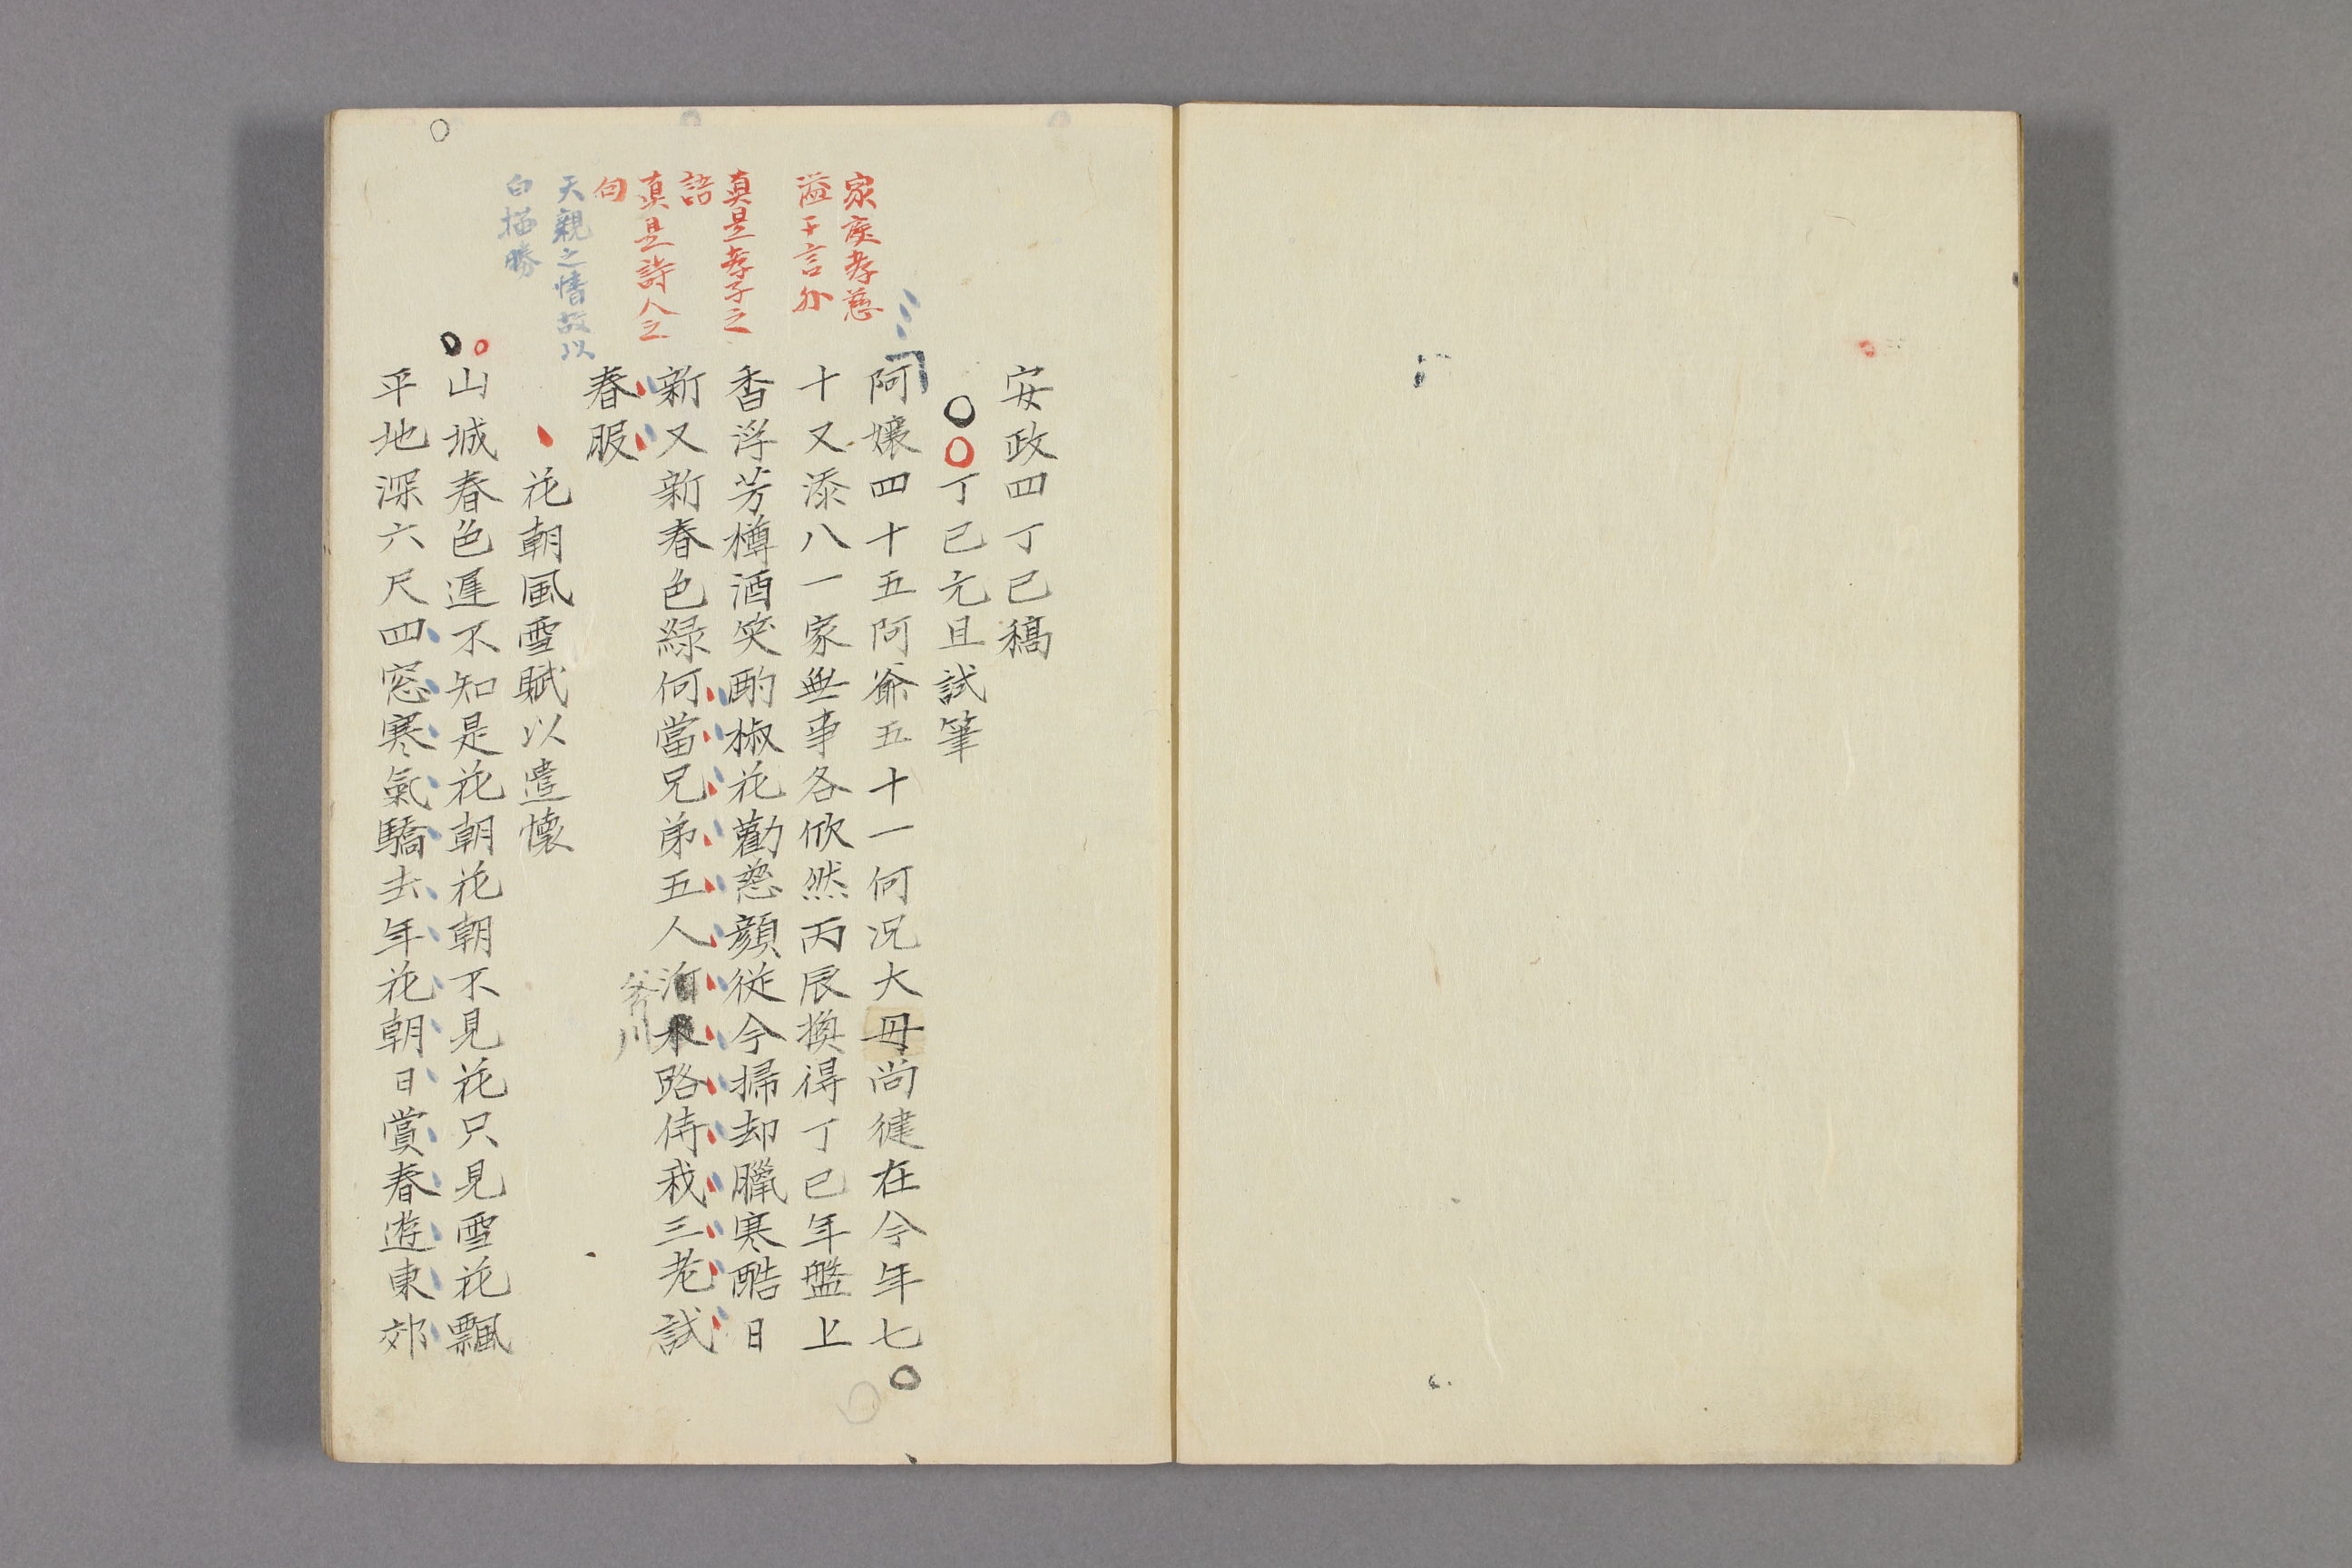 安政四丁巳稿
丁巳元旦試筆
阿孃四十五阿爺五十一何況大母尚健在今年七
十又添八一家無事各欣然丙辰換得丁巳年盤上
香浮芳樽酒笑酌椒花勸慈顔従今掃却臘寒酷日
新又新春色緑何當兄弟五人路侍我三老試
爺川
春服
花朝風雪賦以遣懐
山城春色遲不知是花朝花朝不見花只見雪花飄
平地深六尺四窓寒氣驕去年花朝日賞春遊東郊
家庭孝慈
溢于言外
真是孝子之
語
真是詩人之
句
天親之情故以
白描勝